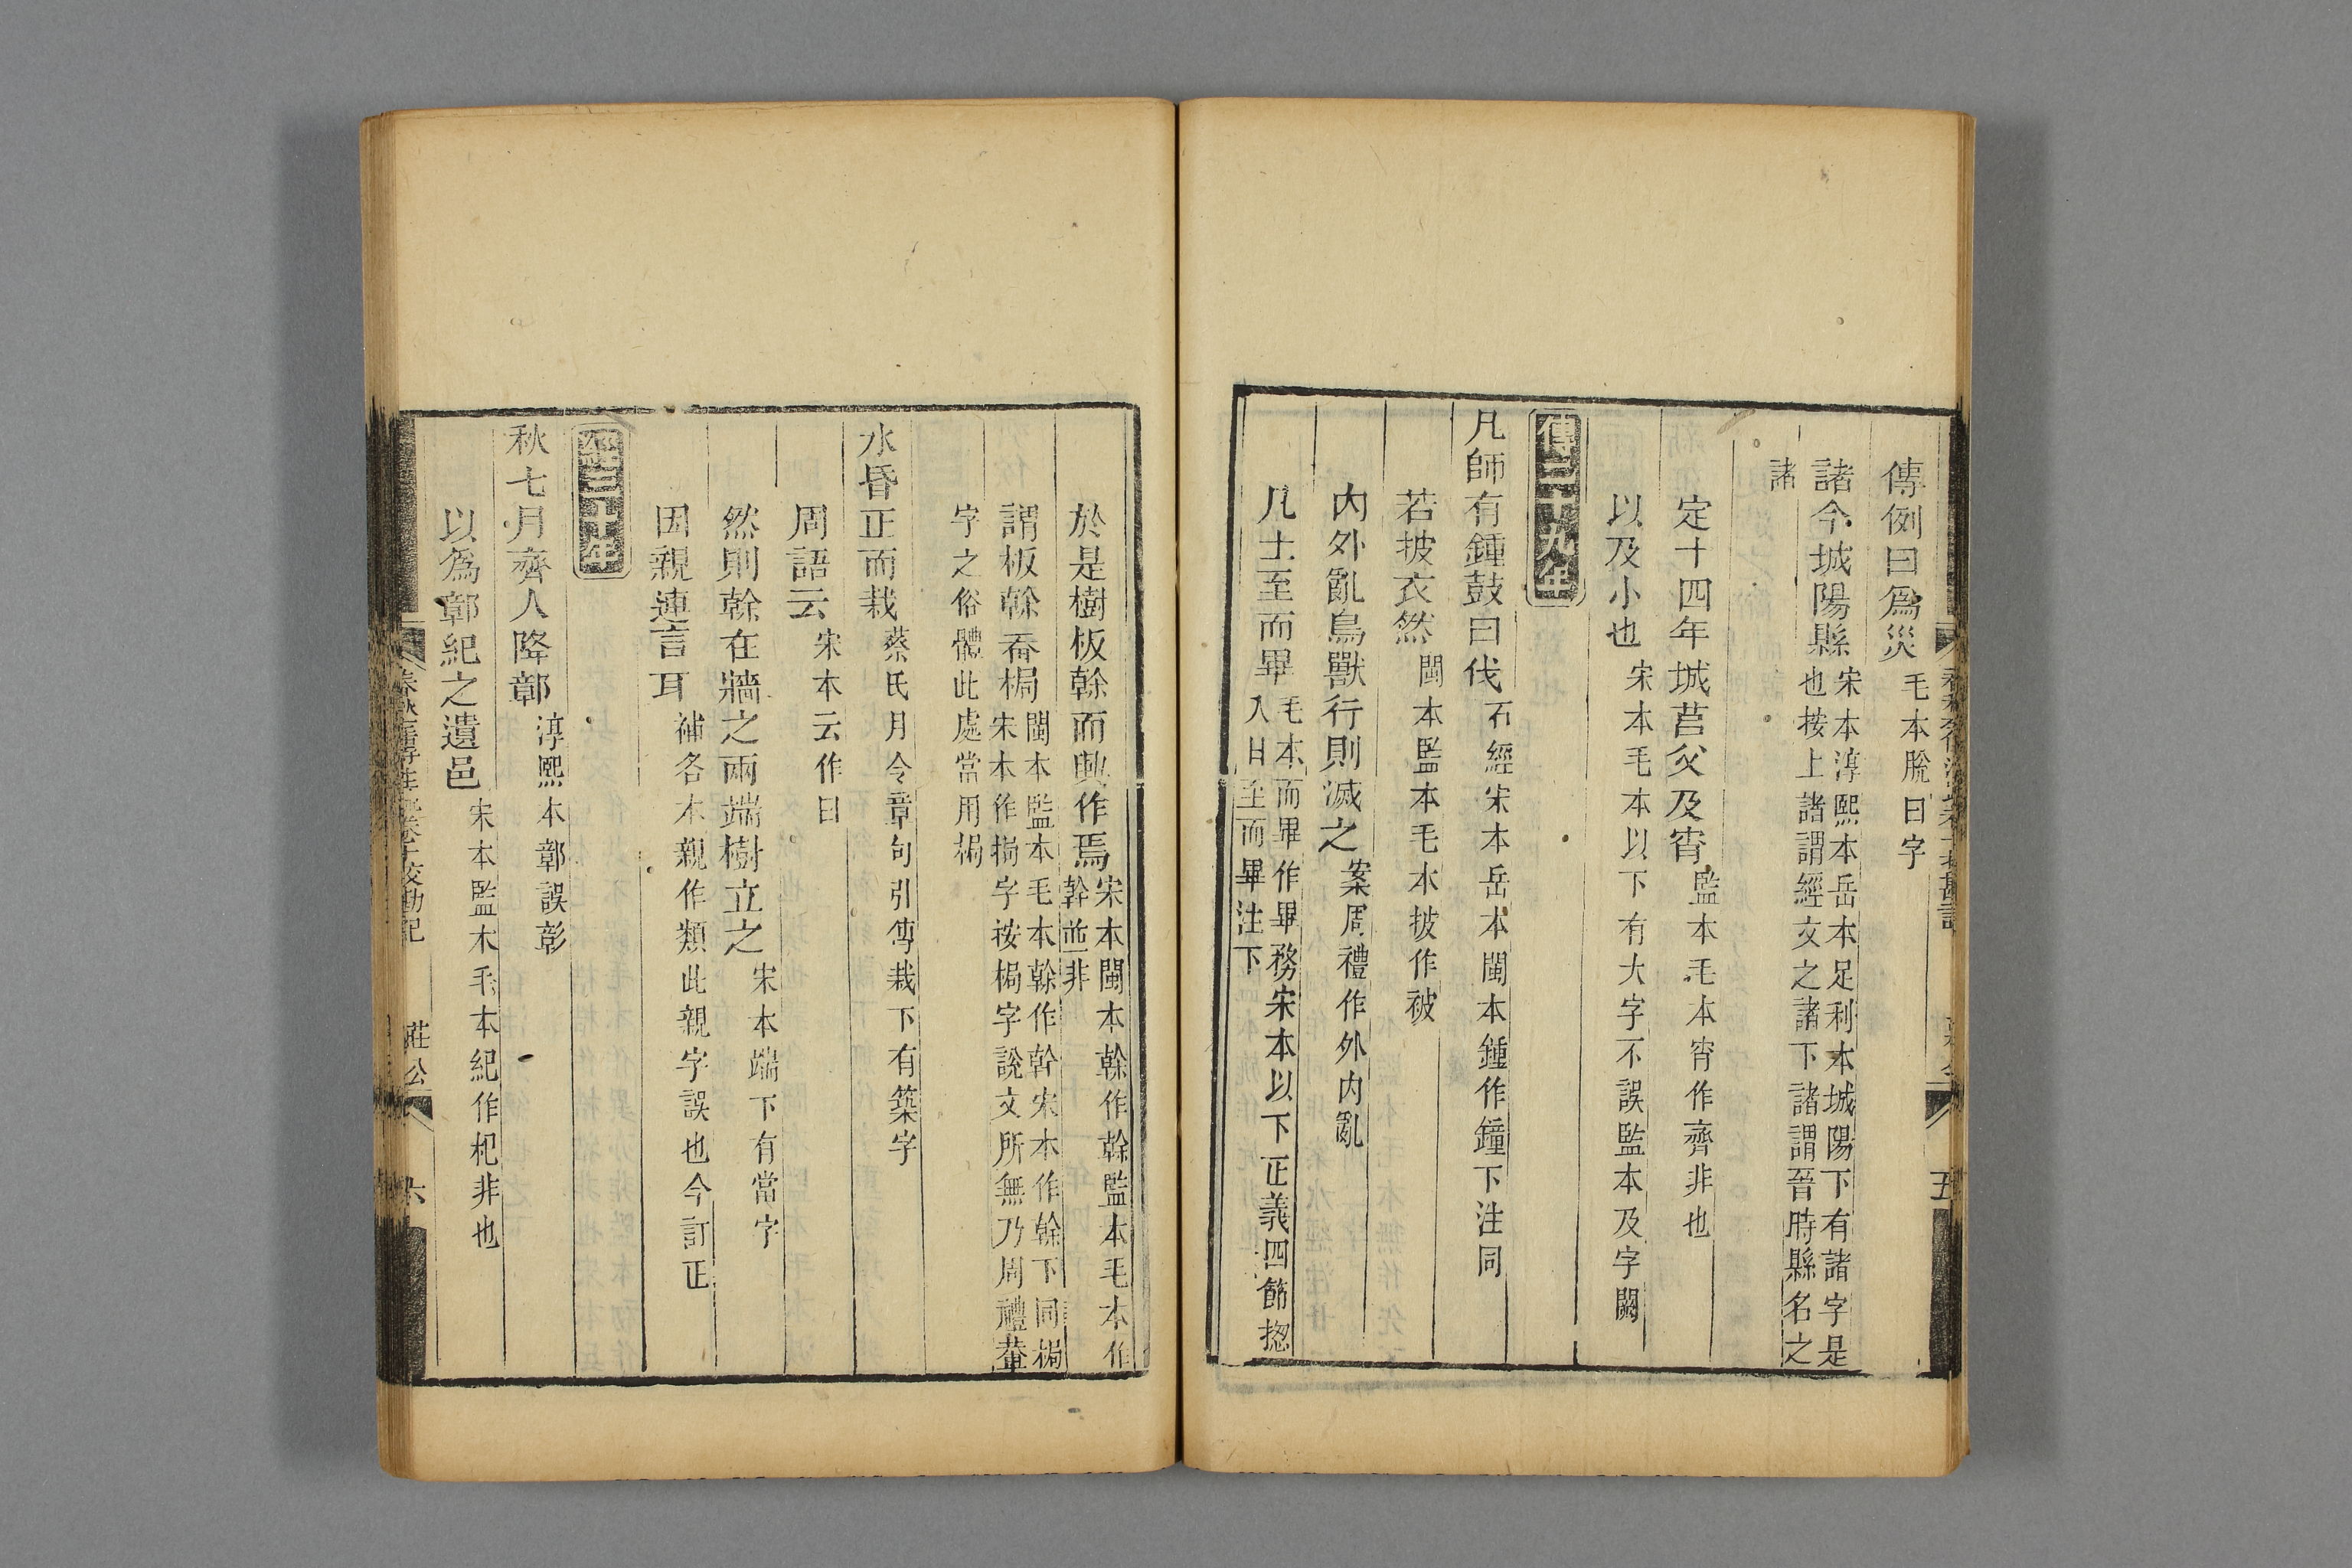 傳例曰爲災毛本脫曰字
諸今城陽縣宋本淳熙本岳本足利本城陽下有諸字是
也按上諸謂經文之諸下諸謂晉時縣名之
諸
定十四年城莒父及霄監本毛本霄作齊非也
以及小也宋本毛本以下有大字不誤監本及字闕
傳二十九年
凡師有鍾鼓曰伐石經宋本岳本閩本鍾作鐘下注同
若披衣然閩本監本毛本披作被
內外亂鳥獸行則滅之案周禮作外內亂
凡土至而畢毛本而畢作畢務宋本以下正義四節揔
入日至而畢注下
於是樹板榦而興作焉宋本閩本榦作幹監本毛本作
幹並非
謂板榦舂梮閩本監本毛本榦作幹宋本作榦下同梮
宋本作挶字按梮字說文所無乃周禮輂
字之俗體此處當用梮
水昏正而栽蔡氏月令章句引傳栽下有築字
周語云宋本云作曰
然則榦在牆之兩端樹立之宋本端下有當字
因親連言耳補各本親作類此親字誤也今訂正
經三十年
秋七月齊人降鄣淳熙本鄣誤彰
以爲鄣紀之遺邑宋本監本毛本紀作杞非也
莊公
六
五